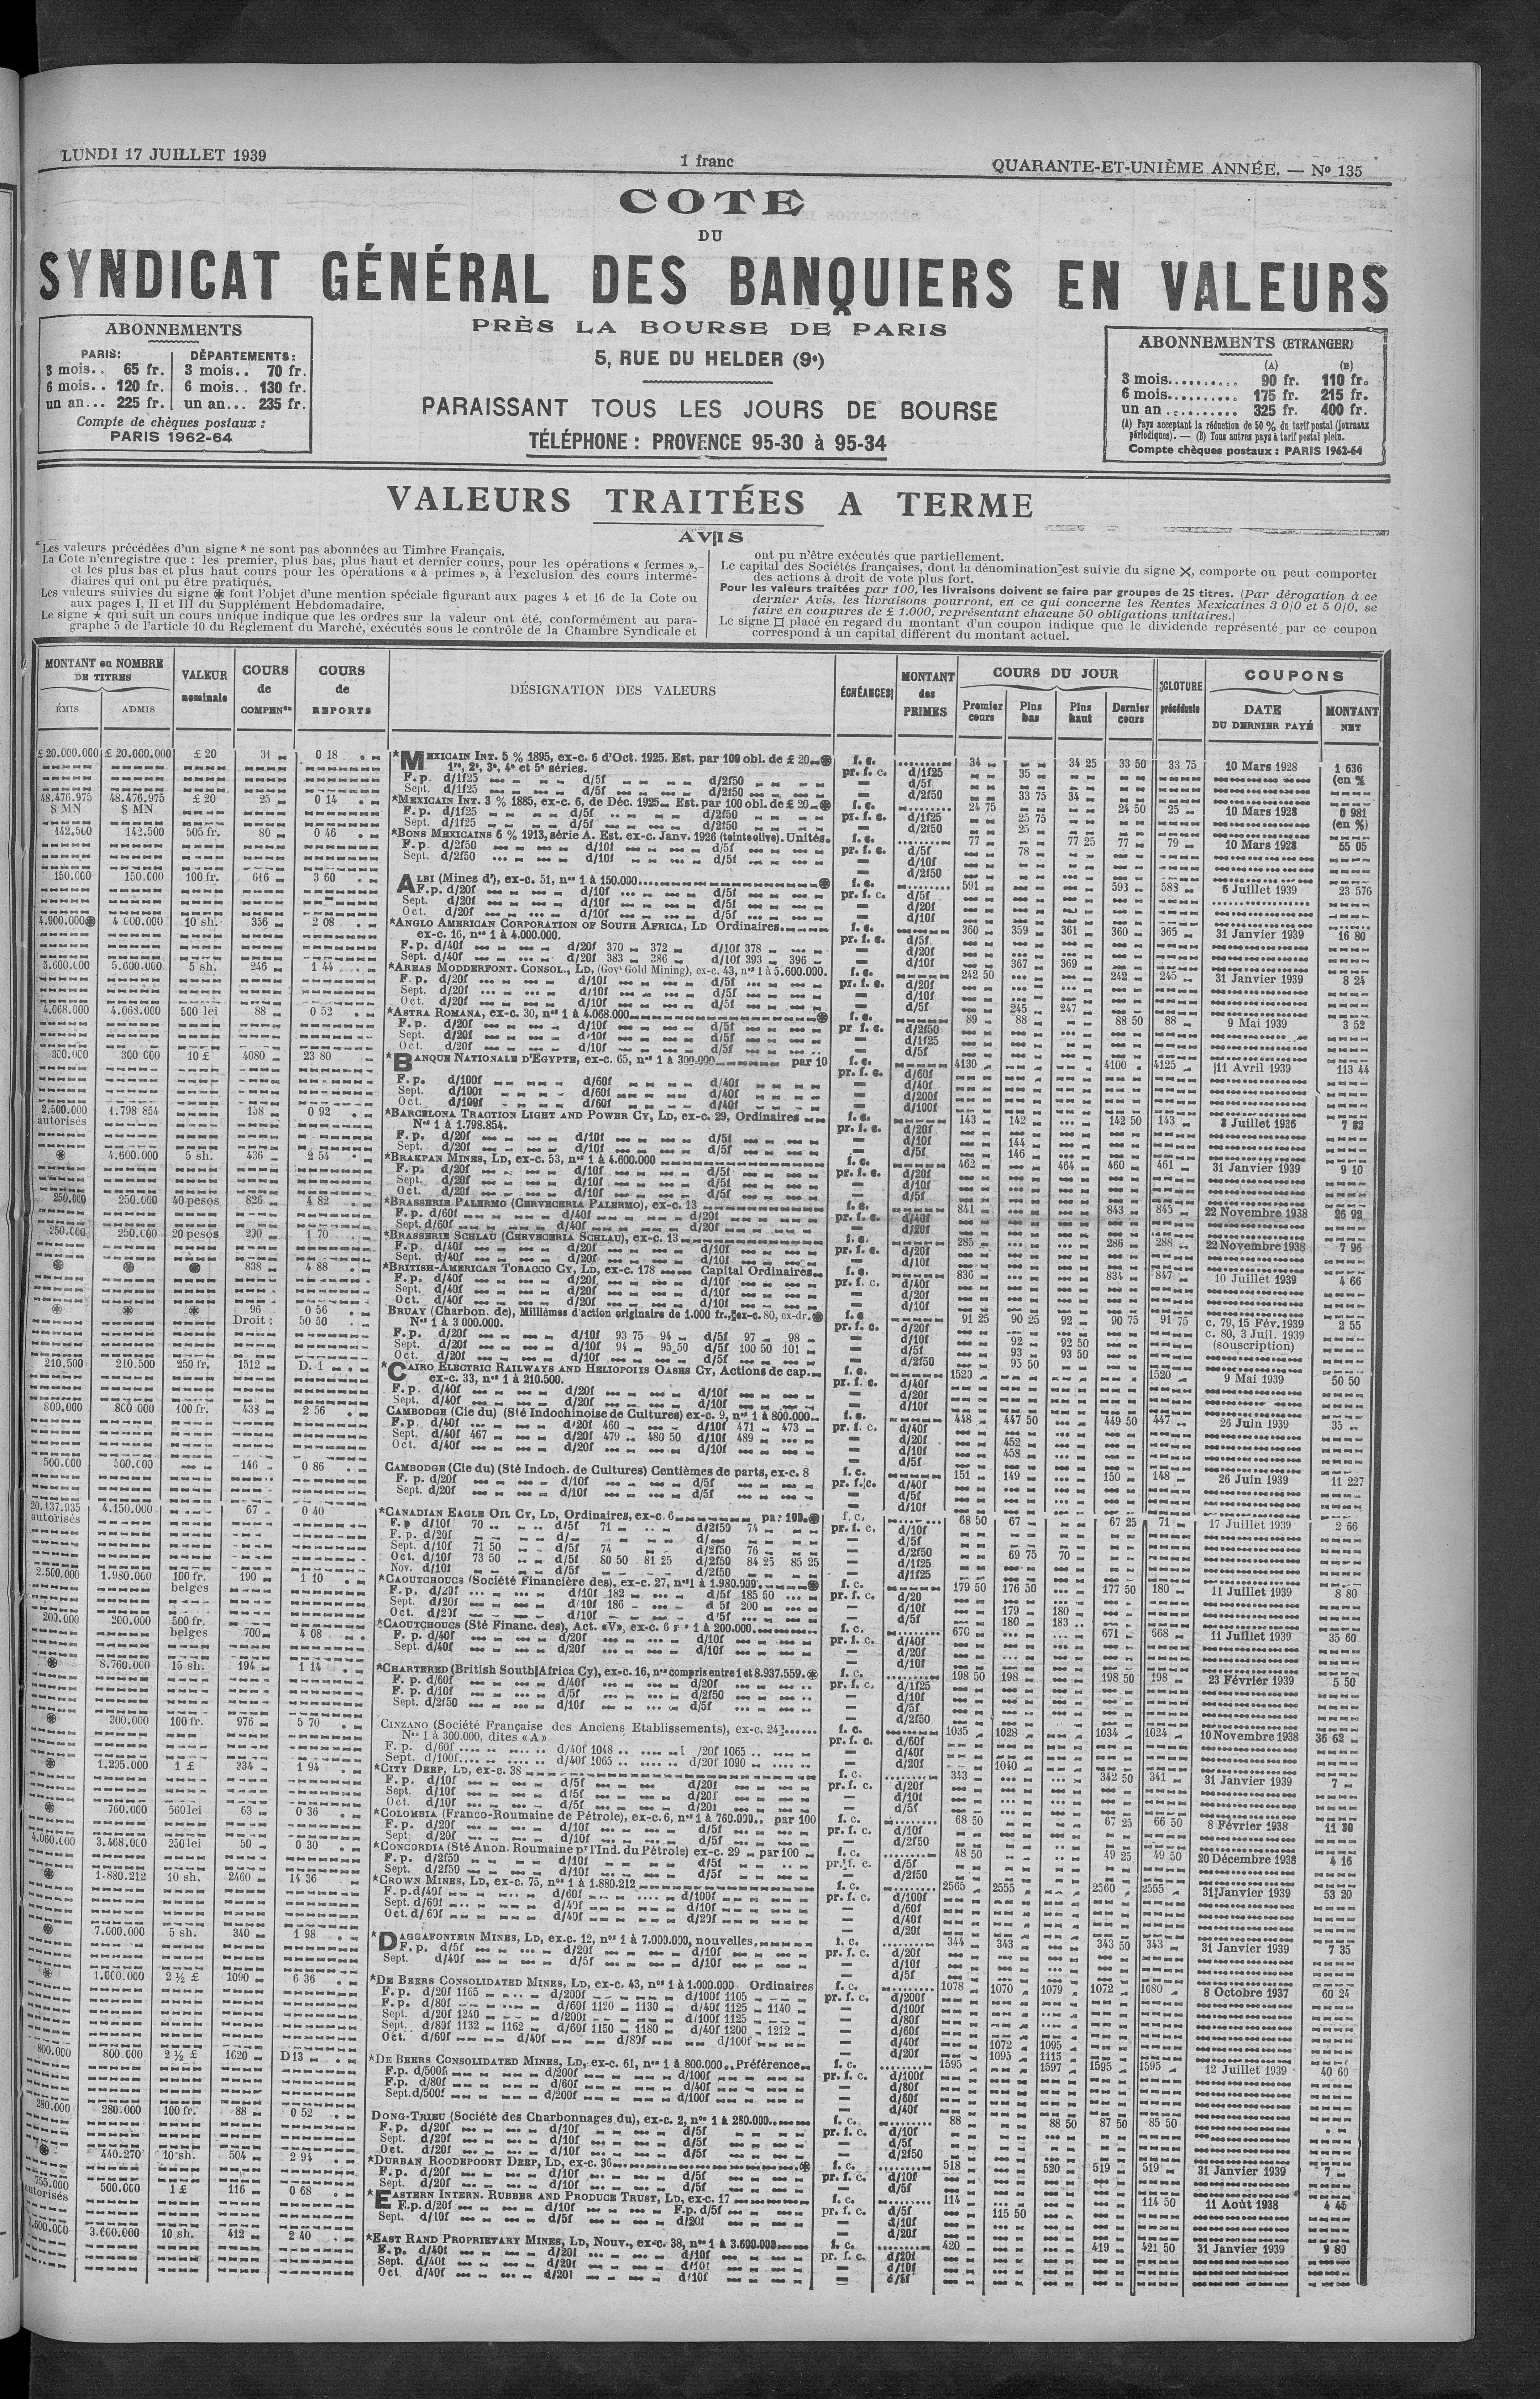 LUNDI 17 JUILLET 1939
1 franc
QUARANTE-ET-UNIÈME ANNÉE. — No 135
COTE
DU
SYNDICAT GÉNÉRAL DES BANQUIERS EN VALEURS
PRÈS LA BOURSE DE PARIS
5, RUE DU HELDER (9e)
PARAISSANT TOUS LES JOURS DE BOURSE
TÉLÉPHONE : PROVENCE 95-30 à 95-34
ABONNEMENTS
PARIS: DÉPARTEMENTS:
3 mois.. 65 fr. 3 mois.. 70 fr.
6 mois.. 120 fr. 6 mois.. 130 fr.
un an... 225 fr. un an... 235 fr.
Compte de chèques postaux :
PARIS 1962-64
ABONNEMENTS (ETRANGER)
(A) (B)
3 mois.......... 90 fr. 110 fr.
6 mois.......... 175 fr. 215 fr.
un an .......... 325 fr. 400 fr.
(A) Pays acceptant la réduction de 50 % du tarif postal (journaux
périodiques). — (B) Tous autres pays à tarif postal plein.
Compte chèques postaux : PARIS 1962-64
VALEURS TRAITÉES A TERME
AVIS
Les valeurs précédées d'un signe * ne sont pas abonnées au Timbre Français.
La Cote n'enregistre que : les premier, plus bas, plus haut et dernier cours, pour les opérations « fermes »,
et les plus bas et plus haut cours pour les opérations « à primes », à l'exclusion des cours intermé-
diaires qui ont pu être pratiqués.
Les valeurs suivies du signe ⊛ font l'objet d'une mention spéciale figurant aux pages 4 et 16 de la Cote ou
aux pages I, II et III du Supplément Hebdomadaire.
Le signe ★ qui suit un cours unique indique que les ordres sur la valeur ont été, conformément au para-
graphe 5 de l'article 10 du Règlement du Marché, exécutés sous le contrôle de la Chambre Syndicale et
ont pu n'être exécutés que partiellement.
Le capital des Sociétés françaises, dont la dénomination est suivie du signe ×, comporte ou peut comporter
des actions à droit de vote plus fort.
Pour les valeurs traitées par 100, les livraisons doivent se faire par groupes de 25 titres. (Par dérogation à ce
dernier Avis, les livraisons pourront, en ce qui concerne les Rentes Mexicaines 3 0|0 et 5 0|0, se
faire en coupures de £ 1.000, représentant chacune 50 obligations unitaires.)
Le signe □ placé en regard du montant d'un coupon indique que le dividende représenté par ce coupon
correspond à un capital différent du montant actuel.
MONTANT ou NOMBRE DE TITRES
ÉMIS ADMIS
VALEUR nominale
COURS de COMPENon
COURS de REPORTS
DÉSIGNATION DES VALEURS
ÉCHÉANCES
MONTANT des PRIMES
COURS DU JOUR
Premier cours Plus bas Plus haut Dernier cours
CLOTURE précédente
COUPONS
DATE DU DERNIER PAYÉ
MONTANT NET
£ 20.000.000 £ 20.000.000 £ 20 34 0 18 *MEXICAIN INT. 5 % 1895, ex-c. 6 d'Oct. 1925. Est. par 100 obl. de £ 20 ⊛ f. c. 34 34 25 33 50 33 75 10 Mars 1928 1 636
1re, 2e, 3e, 4e et 5e séries. pr. f. c. d/1f25 35 (en %
F. p. d/1f25 d/5f d/2f50
Sept. d/1f25 d/5f d/2f50 33 75 34
48.476.975 48.476.975 £ 20 25 0 14 *MEXICAIN INT. 3 % 1885, ex-c. 6, de Déc. 1925. Est. par 100 obl. de £ 20 ⊛ f. c. 24 75 24 50 25 10 Mars 1928 0 981
$ MN $ MN F. p. d/1f25 d/5f d/2f50 pr. f. c. d/1f25 25 75 (en %)
Sept. d/1f25 d/5f d/2f50 d/2f50 25
142.500 142.500 505 fr. 80 0 46 *BONS MEXICAINS 6 % 1913, série A. Est. ex-c. Janv. 1926 (teinte olive). Unités. f. c. 77 77 25 77 79 10 Mars 1928 55 05
F. p. d/2f50 d/10f d/5f pr. f. c. d/5f 78
Sept. d/2f50 d/10f d/5f d/10f
150.000 150.000 100 fr. 616 3 60 ALBI (Mines d'), ex-c. 51, nos 1 à 150.000 ⊛ f. c. 591 593 583 6 Juillet 1939 23 576
F. p. d/20f d/10f d/5f pr. f. c. d/5f
Sept. d/20f d/10f d/5f d/20f
Oct. d/20f d/10f d/5f d/10f
4.900.000⊛ 4.000.000 10 sh. 356 2 08 *ANGLO AMERICAN CORPORATION OF SOUTH AFRICA, LD Ordinaires f. c. 360 359 361 360 365 31 Janvier 1939 16 80
ex-c. 16, nos 1 à 4.000.000. pr. f. c. d/5f
F. p. d/40f d/20f 370 372 d/10f 378 d/20f
Sept. d/40f d/20f 383 386 d/10f 393 396 d/10f 367 369
5.600.000 5.600.000 5 sh. 246 1 44 *AREAS MODDERFONT. CONSOL., LD, (Govt Gold Mining), ex-c. 43, nos 1 à 5.600.000. f. c. 242 50 242 245 31 Janvier 1939 8 24
F. p. d/20f d/10f d/5f pr. f. c. d/20f
Sept. d/20f d/10f d/5f d/10f
Oct. d/20f d/10f d/5f d/5f 245 247
4.068.000 4.068.000 500 lei 88 0 52 *ASTRA ROMANA, ex-c. 30, nos 1 à 4.068.000 ⊛ f. c. 89 88 88 50 88 9 Mai 1939 3 52
F. p. d/20f d/10f d/5f pr f. c. d/2f50
Sept. d/20f d/10f d/5f d/1f25
Oct. d/20f d/10f d/5f d/5f
300.000 300.000 10 £ 4080 23 80 *BANQUE NATIONALE D'EGYPTE, ex-c. 65, nos 1 à 300.000 par 10 f. c. 4130 4100 4125 11 Avril 1939 113 44
F. p. d/100f d/60f d/40f pr. f. c. d/60f
Sept. d/100f d/60f d/40f d/40f
Oct. d/100f d/60f d/40f d/200f
d/100f
2.500.000 1.798 854 158 0 92 *BARCELONA TRACTION LIGHT AND POWER CY, LD, ex-c. 29, Ordinaires f. c. 143 142 142 50 143 8 Juillet 1936 7 82
autorisés Nos 1 à 1.798.854. pr. f. c. d/20f
F. p. d/20f d/10f d/5f d/10f 144
Sept. d/20f d/10f d/5f d/5f 146
⊛ 4.600.000 5 sh. 436 2 54 *BRAKPAN MINES, LD, ex-c. 53, nos 1 à 4.600.000 f. c. 462 464 460 461 31 Janvier 1939 9 10
F. p. d/20f d/10f d/5f pr. f. c. d/20f
Sept. d/20f d/10f d/5f d/10f
Oct. d/20f d/10f d/5f d/5f
250.000 250.000 40 pesos 826 4 82 *BRASSERIE PALERMO (CERVECERIA PALERMO), ex-c. 13 f. c. 841 843 845 22 Novembre 1938 26 92
F. p. d/60f d/40f d/20f pr. f. c. d/40f
Sept. d/60f d/40f d/20f d/20f
250.000 250.000 20 pesos 290 1 70 *BRASSERIE SCHLAU (CERVECERIA SCHLAU), ex-c. 13 f. c. 285 286 288 22 Novembre 1938 7 96
F. p. d/40f d/20f d/10f pr. f. c. d/20f
Sept. d/40f d/20f d/10f d/10f
⊛ ⊛ ⊛ 838 4 88 *BRITISH-AMERICAN TOBACCO CY, LD, ex-c. 178 Capital Ordinaires f. c. 836 834 847 10 Juillet 1939 4 66
F. p. d/40f d/20f d/10f pr. f. c. d/40f
Sept. d/40f d/20f d/10f d/20f
Oct. d/40f d/20f d/10f d/10f
⊛ ⊛ ⊛ 96 0 56 BRUAY (Charbon. de), Millièmes d'action originaire de 1.000 fr., ex-c. 80, ex-dr. ⊛ f. c 91 25 90 25 92 90 75 91 75 c. 79, 15 Fév. 1939 2 55
Droit : 50 50 Nos 1 à 3 000.000. pr. f. c. d/20f c. 80, 3 Juil. 1939
F. p. d/20f d/10f 93 75 94 d/5f 97 98 d/10f 92 92 50 (souscription)
Sept. d/20f d/10f 94 95 50 d/5f 100 50 101 d/5f 93 93 50
Oct. d/20f d/10f d/5f d/2f50 95 50
210.500 210.500 250 fr. 1512 D. 1 *CAIRO ELECTRIC RAILWAYS AND HELIOPOLIS OASES CY, Actions de cap. f. c. 1520 1520 9 Mai 1939 50 50
ex-c. 33, nos 1 à 210.500. pr. f. c. d/40f
F. p. d/40f d/20f d/10f d/20f
Sept. d/40f d/20f d/10f d/10f
800.000 800 000 100 fr. 438 2 56 CAMBODGE (Cie du) (Sté Indochinoise de Cultures) ex-c. 9, nos 1 à 800.000 f. c. 448 447 50 449 50 447 26 Juin 1939 35
F. p. d/40f d/20f 460 d/10f 471 473 pr. f. c. d/40f
Sept. d/40f 467 d/20f 479 480 50 d/10f 489 d/20f
Oct. d/40f d/20f d/10f d/10f 452
d/5f 458
500.000 500.000 146 0 86 CAMBODGE (Cie du) (Sté Indoch. de Cultures) Centièmes de parts, ex-c. 8 f. c. 151 149 150 148 26 Juin 1939 11 227
F. p. d/20f d/10f d/5f pr. f. c. d/40f
Sept. d/20f d/10f d/5f d/5f
d/10f
20.137.935 4.150.000 67 0 40 *CANADIAN EAGLE OIL CY, LD, Ordinaires, ex-c. 6 par 100 ⊛ f. c. 68 50 67 67 25 71 17 Juillet 1939 2 66
autorisés F. p d/10f 70 d/5f 71 d/2f50 74 pr. f. c. d/10f
F. p. d/20f d/ d/ d/5f
Sept. d/10f 71 50 d/5f 74 d/2f50 76 d/2f50 69 75 70
Oct. d/10f 73 50 d/5f 80 50 81 25 d/2f50 84 25 85 25 d/1f25
Nov. d/10f d/5f d/2f50
2.500.000 1.980.000 100 fr. 190 1 10 *CAOUTCHOUCS (Société Financière des), ex-c. 27, nos 1 à 1.980.000 ⊛ f. c. 179 50 176 50 177 50 180 11 Juillet 1939 8 80
belges F. p. d/20f d/10f 182 d/5f 185 50 pr. f. c. d/20
Sept. d/20f d/10f 186 d 5f 200 d/10f 179 180
Oct. d/20f d/10f d/5f d/5f 180 183
200.000 200.000 500 fr. 700 4 08 *CAOUTCHOUCS (Sté Financ. des), Act. «V», ex-c. 6 1 à 200.000 f. c. 670 671 668 11 Juillet 1939 35 60
belges F. p. d/40f d/20f d/10f pr. f. c. d/40f
Sept. d/40f d/20f d/10f d/20f
d/10f
⊛ 8.760.000 15 sh. 194 1 14 *CHARTERED (British South Africa Cy), ex-c. 16, nos compris entre 1 et 8.937.559. ⊛ f. c. 198 50 198 198 50 198 23 Février 1939 5 50
F. p. d/60f d/40f d/20f pr. f. c. d/1f25
F. p. d/10f d/5f d/2f50 d/10f
Sept. d/2f50 d/10f d/5f d/5f
d/2f50
⊛ 300.000 100 fr. 976 5 70 CINZANO (Société Française des Anciens Etablissements), ex-c. 24 f. c. 1035 1028 1034 1024 10 Novembre 1938 36 62
Nos 1 à 300.000, dites «A» pr. f. c. d/60f
F. p. d/60f d/40f 1048 /20f 1065 d/40f
Sept. d/100f d/40f 1065 d/20f 1090 d/20f 1040
⊛ 1.295.000 1 £ 334 1 94 *CITY DEEP, LD, ex-c. 38 f. c. 343 342 50 341 31 Janvier 1939 7
F. p. d/10f d/5f d/20f pr. f. c. d/20f
Sept. d/10f d/5f d/20f d/10f
Oct. d/10f d/5f d/20f d/5f
⊛ 760.000 560 lei 63 0 36 *COLOMBIA (Franco-Roumaine de Pétrole), ex-c. 6, nos 1 à 760.000 par 100 f. c. 68 50 67 25 66 50 8 Février 1938 11 30
F. p. d/20f d/10f d/5f pr. f. c. d/10f
Sept. d/20f d/10f d/5f d/2f50
4.060.000 3.468.000 250 lei 50 0 30 *CONCORDIA (Sté Anon. Roumaine pr l'Ind. du Pétrole) ex-c. 29 par 100 f. c. 48 50 49 25 49 50 20 Décembre 1938 4 16
F. p. d/2f50 d/10f d/5f pr. f. c. d/5f
Sept. d/2f50 d/10f d/5f d/2f50
⊛ 1.880.212 10 sh. 2460 14 36 *CROWN MINES, LD, ex-c. 75, nos 1 à 1.880.212 f. c. 2565 2555 2560 2555 31 Janvier 1939 53 20
F. p. d/40f d/60f d/100f pr. f. c. d/100f
Sept. d/60f d/40f d/10f d/60f
Oct. d/60f d/40f d/20f d/40f
d/20f
⊛ 7.000.000 5 sh. 340 1 98 *DAGGAFONTEIN MINES, LD, ex-c. 12, nos 1 à 7.000.000, nouvelles f. c. 344 343 343 50 343 31 Janvier 1939 7 35
F. p. d/5f d/20f d/10f pr. f. c. d/20f
Sept. d/40f d/5f d/10f d/10f
d/5f
⊛ 1.000.000 2 ½ £ 1090 6 36 *DE BEERS CONSOLIDATED MINES, LD, ex-c. 43, nos 1 à 1.000.000 Ordinaires f. c. 1078 1070 1079 1072 1080 8 Octobre 1937 60 24
F. p. d/20f 1165 d/200f d/100f 1105 pr. f. c. d/200f
F. p. d/80f d/60f 1120 1130 d/40f 1125 1140 d/100f
Sept. d/20f 1240 d/200f d/100f 1125 d/80f
Sept. d/80f 1132 1162 d/60f 1150 1180 d/40f 1200 1212 d/60f
Oct. d/60f d/40f d/80f d/100f d/40f 1072 1095
d/20f 1095 1115
800.000 800.000 2 ½ £ 1620 D 13 *DE BEERS CONSOLIDATED MINES, LD, ex-c. 61, nos 1 à 800.000 Préférence f. c. 1595 1597 1595 1595 12 Juillet 1939 40 60
F. p. d/500f d/200f d/100f pr. f. c. d/100f
F. p. d/80f d/60f d/40f d/80f
Sept. d/500f d/200f d/100f d/60f
d/40f
280.000 280.000 100 fr. 88 0 52 DONG-TRIEU (Société des Charbonnages du), ex-c. 2, nos 1 à 280.000 f. c. 88 88 50 87 50 85 50
F. p. d/20f d/10f d/5f pr. f. c. d/10f
Sept. d/20f d/10f d/5f d/5f
Oct. d/20f d/10f d/5f d/2f50
⊛ 440.270 10 sh. 504 2 94 *DURBAN ROODEPOORT DEEP, LD, ex-c. 36 ⊛ f. c. 518 520 519 519 31 Janvier 1939 7
F. p. d/20f d/10f d/5f pr. f. c. d/10f
Sept. d/20f d/10f d/5f d/5f
755.000 500.000 1 £ 116 0 68 *EASTERN INTERN. RUBBER AND PRODUCE TRUST, LD, ex-c. 17 f. c. 114 114 50 11 Août 1938 4 45
autorisés F. p. d/20f d/10f F. p. d/5f pr. f. c. d/5f 115 50
Sept. d/10f d/5f d/20f d/10f
d/20f
3.600.000 3.600.000 10 sh. 412 2 40 *EAST RAND PROPRIETARY MINES, LD, Nouv., ex-c. 38, nos 1 à 3.600.000 f. c. 420 419 421 50 31 Janvier 1939 9 80
F. p. d/40f d/20f d/10f pr. f. c. d/20f
Sept. d/40f d/20f d/10f d/10f
Oct d/40f d/20f d/10f d/5f